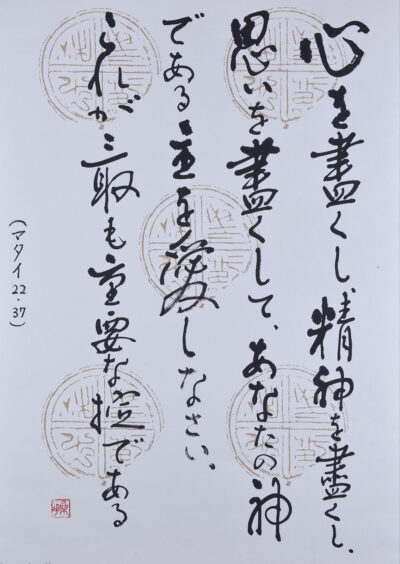 心を盡くし、精神を盡くし、
思いを盡くして、あなたの神
である主を愛しなさい、
これが最も重要な掟である
(マタイ22・37)